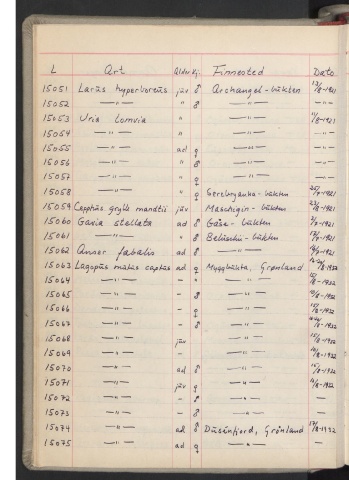 L Art Alder Kj. Finnested Dato
15051 Larus hyperboreus juv ♂ Archangel-bukten 12/8-1921
15052 —"— " ♂ —"— —"—
15053 Uria lomvia " —"— 11/8-1921
15054 —"— " —"— —"—
15055 —"— ad ♀ —"— —"—
15056 —"— " ♂ —"— —"—
15057 —"— " ♀ —"— —"—
15058 —"— " ♀ Serebryanka-bukten 20/7-1921
15059 Cepphus grylle mandtii juv Maschigin-bukten 23/8-1921
15060 Gavia stellata ad ♂ Gåse-bukten 2/8-1921
15061 —"— " ♂ Belushii-bukten 17/7-1921
15062 Anser fabalis ad ♂ —"—
15063 Lagopus mutus captus ad ♀ Myggbukta, Grønland
15064 —"— - ♀ —"—
15065 —"— - ♂ —"—
15066 —"— - ♀ —"—
15067 —"— - ♂ —"—
15068 —"— juv —"—
15069 —"— - —"—
15070 —"— ad ♂ —"—
15071 —"— juv ♀ —"—
15072 —"— - ♂ —"— —"—
15073 —"— - ♂ —"— —"—
15074 —"— ad ♂ Dusénfjord, Grønland 17/8-1932
15075 —"— ad ♀ —"— —"—